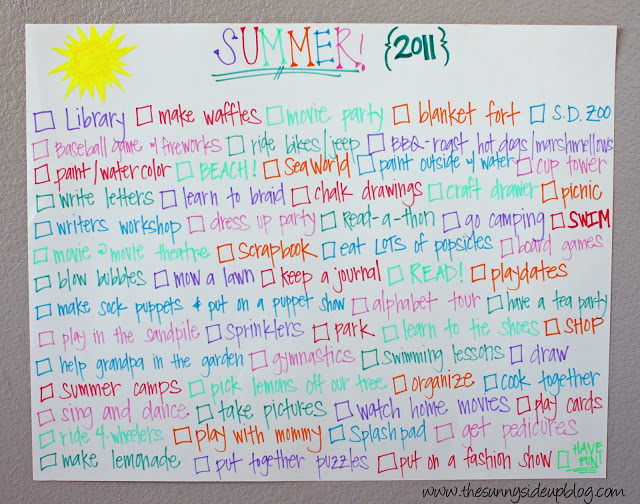 SUMMER! {2011}
Library make waffles movie party blanket fort S.D. ZOO
Baseball game w/ fireworks ride bikes/jeep BBQ-roast hot dogs/marshmallows
paint/watercolor BEACH! Sea World paint outside w/ water cup tower
write letters learn to braid chalk drawings craft drawer picnic
writers workshop dress up party Read-a-thon go camping SWIM
movie @ movie theatre Scrapbook eat LOTS of popsicles board games
blow bubbles mow a lawn keep a journal READ! playdates
make sock puppets & put on a puppet show alphabet tour have a tea party
play in the sandpile sprinklers park learn to tie shoes SHOP
help grandpa in the garden gymnastics swimming lessons draw
summer camps pick lemons off our tree organize cook together
sing and dance take pictures watch home movies play cards
ride 4-wheelers play with mommy Splash pad get pedicures
make lemonade put together puzzles put on a fashion show HAVE FUN!
www.thesunnysideupblog.com